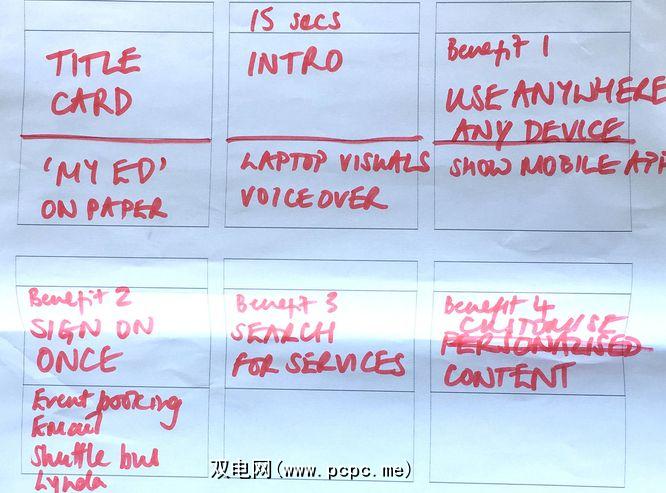 TITLE
CARD
'MY ED'
ON PAPER
15 secs
INTRO
LAPTOP VISUALS
VOICEOVER
Benefit 1
USE ANYWHERE
ANY DEVICE
SHOW MOBILE APP
Benefit 2
SIGN ON
ONCE
Event booking
Email
Shuttle bus
Lynda
Benefit 3
SEARCH
FOR SERVICES
Benefit 4
CUSTOMISE
PERSONALISED
CONTENT
双电网(www.pcpc.me)